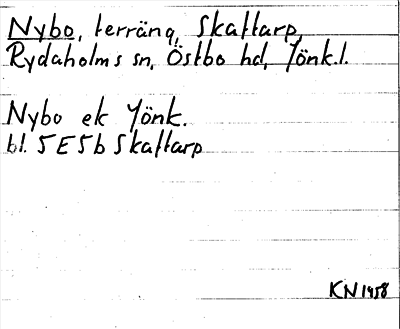 Nybo, terräng, Skaftarp,
Rydaholms sn, Östbo hd, Jönk.l.
Nybo ek Jönk.
bl. 5E5b Skaftarp
KN 1958